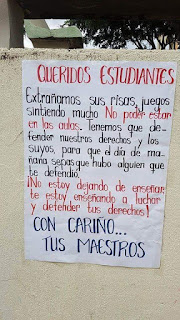 QUERIDOS ESTUDIANTES
Extrañamos sus risas, juegos
sintiendo mucho No poder estar
en las aulas. Tenemos que de-
fender nuestros derechos y los
suyos, para que el día de ma-
ñana sepas que hubo alguien que
te defendió.
¡No estoy dejando de enseñar,
te estoy enseñando a luchar
y defender tus derechos!
CON CARIÑO...
TUS MAESTROS